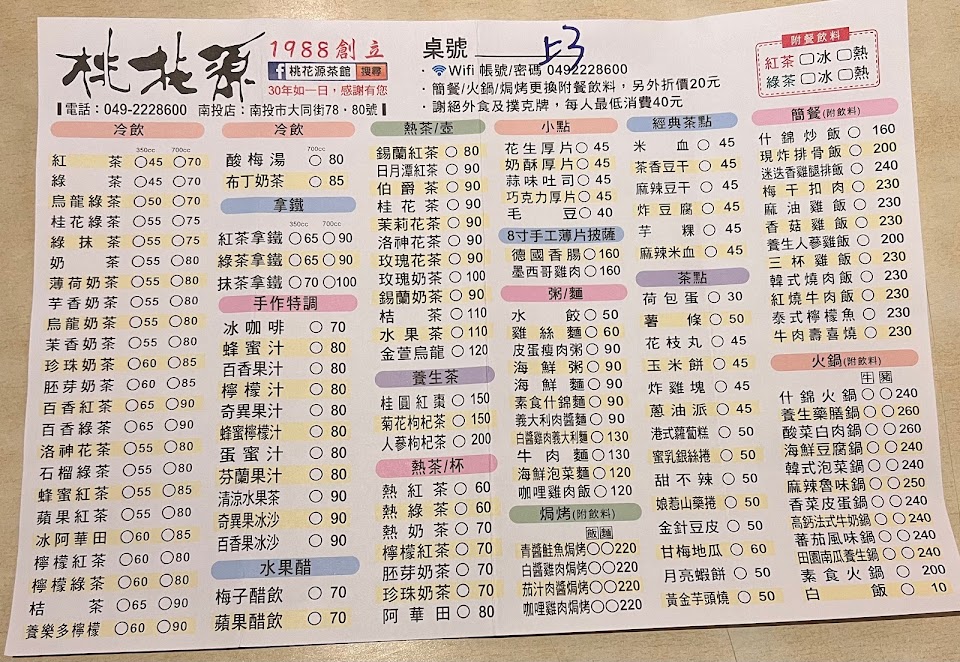 桃花源
1988創立
f 桃花源茶館 搜尋
30年如一日，感謝有您
電話：049-2228600 南投店：南投市大同街78・80號
桌號 上3
・Wifi 帳號/密碼 0492228600
・簡餐/火鍋/焗烤更換附餐飲料，另外折價20元
・謝絕外食及撲克牌，每人最低消費40元
附餐飲料
紅茶 冰 熱
綠茶 冰 熱
冷飲
350cc 700cc
紅茶 45 70
綠茶 45 70
烏龍綠茶 50 70
桂花綠茶 55 75
綠抹茶 55 75
奶茶 55 80
薄荷奶茶 55 80
芋香奶茶 55 80
烏龍奶茶 55 80
茉香奶茶 55 80
珍珠奶茶 60 85
胚芽奶茶 60 85
百香紅茶 65 90
百香綠茶 65 90
洛神花茶 55 80
石榴綠茶 55 80
蜂蜜紅茶 55 85
蘋果紅茶 55 80
冰阿華田 60 85
檸檬紅茶 60 80
檸檬綠茶 60 80
桔茶 65 90
養樂多檸檬 60 90
冷飲
700cc
酸梅湯 80
布丁奶茶 85
拿鐵
350cc 700cc
紅茶拿鐵 65 90
綠茶拿鐵 65 90
抹茶拿鐵 70 100
手作特調
冰咖啡 70
蜂蜜汁 80
百香果汁 80
檸檬汁 80
奇異果汁 80
蜂蜜檸檬汁 80
蛋蜜汁 80
芬蘭果汁 80
清涼水果茶 90
奇異果冰沙 90
百香果冰沙 90
水果醋
梅子醋飲 70
蘋果醋飲 70
熱茶/壺
錫蘭紅茶 80
日月潭紅茶 90
伯爵茶 90
桂花茶 90
茉莉花茶 90
洛神花茶 90
玫瑰花茶 90
玫瑰奶茶 100
錫蘭奶茶 90
桔茶 110
水果茶 110
金萱烏龍 120
養生茶
桂圓紅棗 150
菊花枸杞茶 150
人蔘枸杞茶 200
熱茶/杯
熱紅茶 60
熱綠茶 60
熱奶茶 70
檸檬紅茶 70
胚芽奶茶 70
珍珠奶茶 70
阿華田 80
小點
花生厚片 45
奶酥厚片 45
蒜味吐司 45
巧克力厚片 45
毛豆 40
8寸手工薄片披薩
德國香腸 160
墨西哥雞肉 160
粥/麵
水餃 50
雞絲麵 60
皮蛋瘦肉粥 90
海鮮粥 90
海鮮麵 90
素食什錦麵 90
義大利肉醬麵 90
白醬雞肉義大利麵 130
牛肉麵 130
海鮮泡菜麵 120
咖哩雞肉飯 120
焗烤(附飲料)
飯 麵
青醬鮭魚焗烤 220
白醬雞肉焗烤 220
茄汁肉醬焗烤 220
咖哩雞肉焗烤 220
經典茶點
米血 45
茶香豆干 45
麻辣豆干 45
炸豆腐 45
芋粿 45
麻辣米血 45
茶點
荷包蛋 30
薯條 50
花枝丸 45
玉米餅 45
炸雞塊 45
蔥油派 45
港式蘿蔔糕 50
蜜乳銀絲捲 50
甜不辣 50
娘惹山藥捲 50
金針豆皮 50
甘梅地瓜 60
月亮蝦餅 50
黃金芋頭燒 50
簡餐(附飲料)
什錦炒飯 160
現炸排骨飯 200
迷迭香雞腿排飯 240
梅干扣肉 230
麻油雞飯 230
香菇雞飯 230
養生人蔘雞飯 230
三杯雞飯 230
韓式燒肉飯 230
紅燒牛肉飯 230
泰式檸檬魚 230
牛肉壽喜燒 230
火鍋(附飲料)
牛 豬
什錦火鍋 240
養生藥膳鍋 260
酸菜白肉鍋 260
海鮮豆腐鍋 240
韓式泡菜鍋 240
麻辣魯味鍋 250
香菜皮蛋鍋 240
高鈣法式牛奶鍋 240
蕃茄風味鍋 240
田園南瓜養生鍋 240
素食火鍋 200
白飯 10